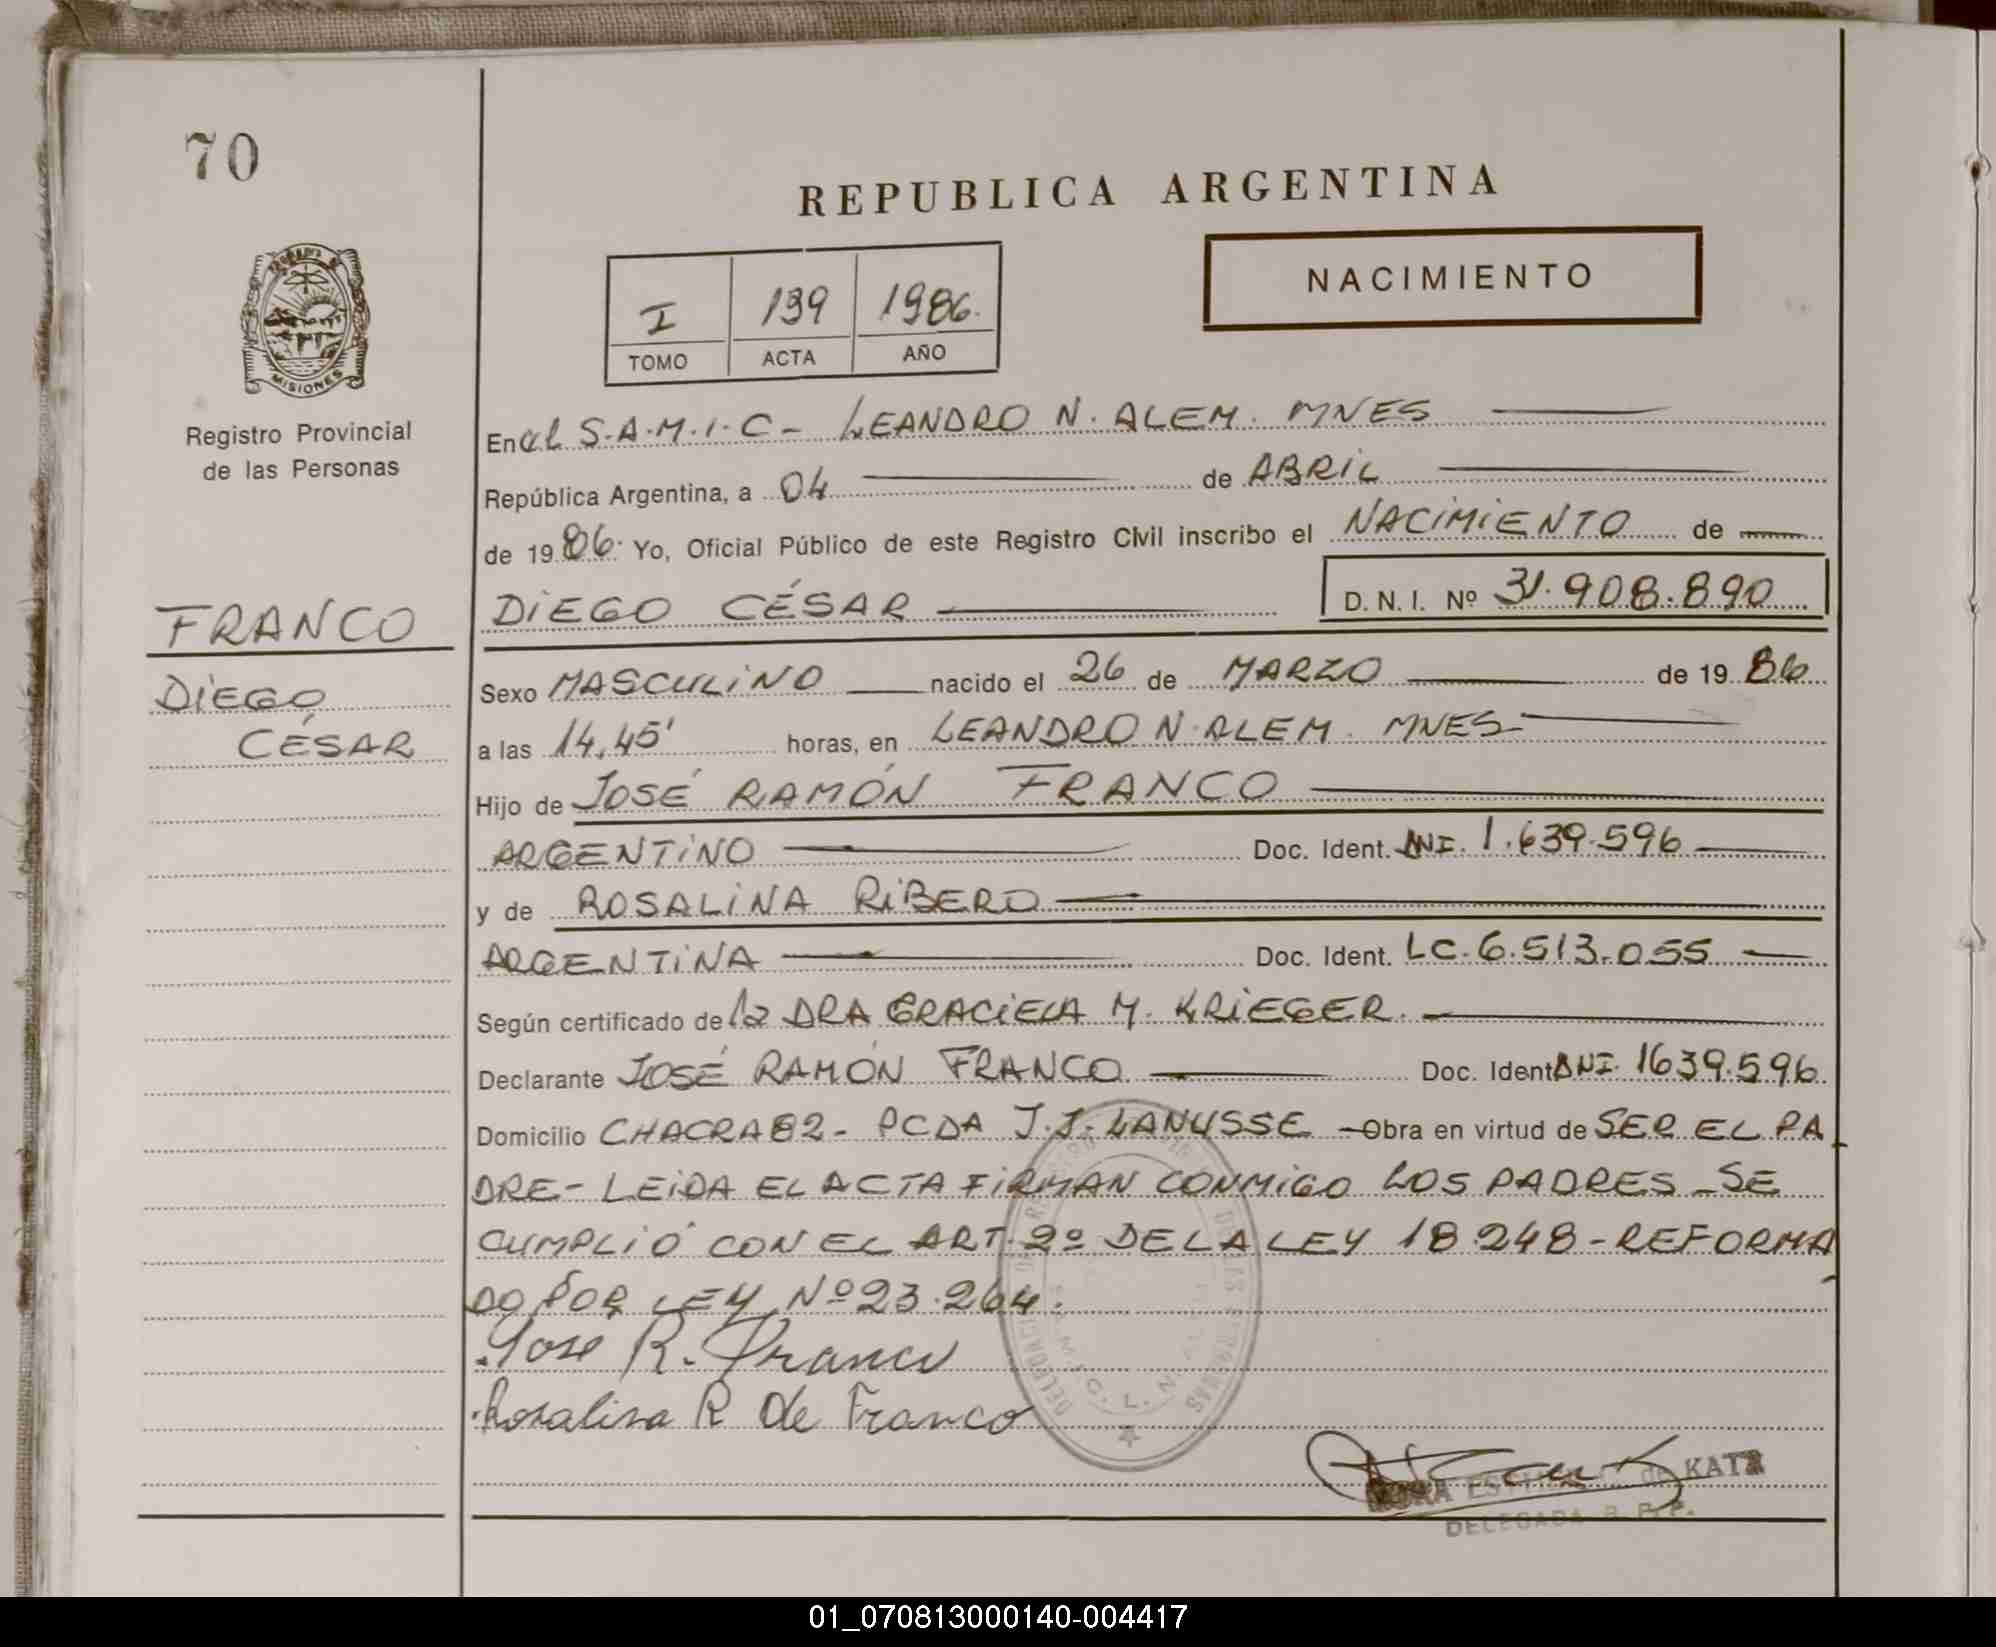 70
REPUBLICA ARGENTINA
NACIMIENTO
I 139 1986.
TOMO ACTA AÑO
MISIONES
Registro Provincial
de las Personas
En el S.A.M.I.C - LEANDRO N. ALEM. MNES
República Argentina, a 04 de ABRIL
de 1986. Yo, Oficial Público de este Registro Civil inscribo el NACIMIENTO de
DIEGO CÉSAR D. N. I. Nº 31.908.890
FRANCO
DIEGO
CÉSAR
Sexo MASCULINO nacido el 26 de MARZO de 19 86
a las 14,45' horas, en LEANDRO N. ALEM. MNES
Hijo de JOSÉ RAMÓN FRANCO
ARGENTINO Doc. Ident. DNI. 1.639.596
y de ROSALINA RIBERO
ARGENTINA Doc. Ident. LC. 6.513.055
Según certificado de la DRA GRACIELA M. KRIEGER.
Declarante JOSÉ RAMÓN FRANCO Doc. Ident DNI. 1639.596
Domicilio CHACRA 82 - PCDA J.J. LANUSSE - Obra en virtud de SER EL PA
DRE - LEIDA EL ACTA FIRMAN CONMIGO LOS PADRES - SE
CUMPLIÓ CON EL ART. 2º DE LA LEY 18.248 - REFORMA
DO POR LEY Nº 23.264.
Jose R. Franco
Rosalina R de Franco
de KATZ
DELEGADA R. P. P.
01_070813000140-004417